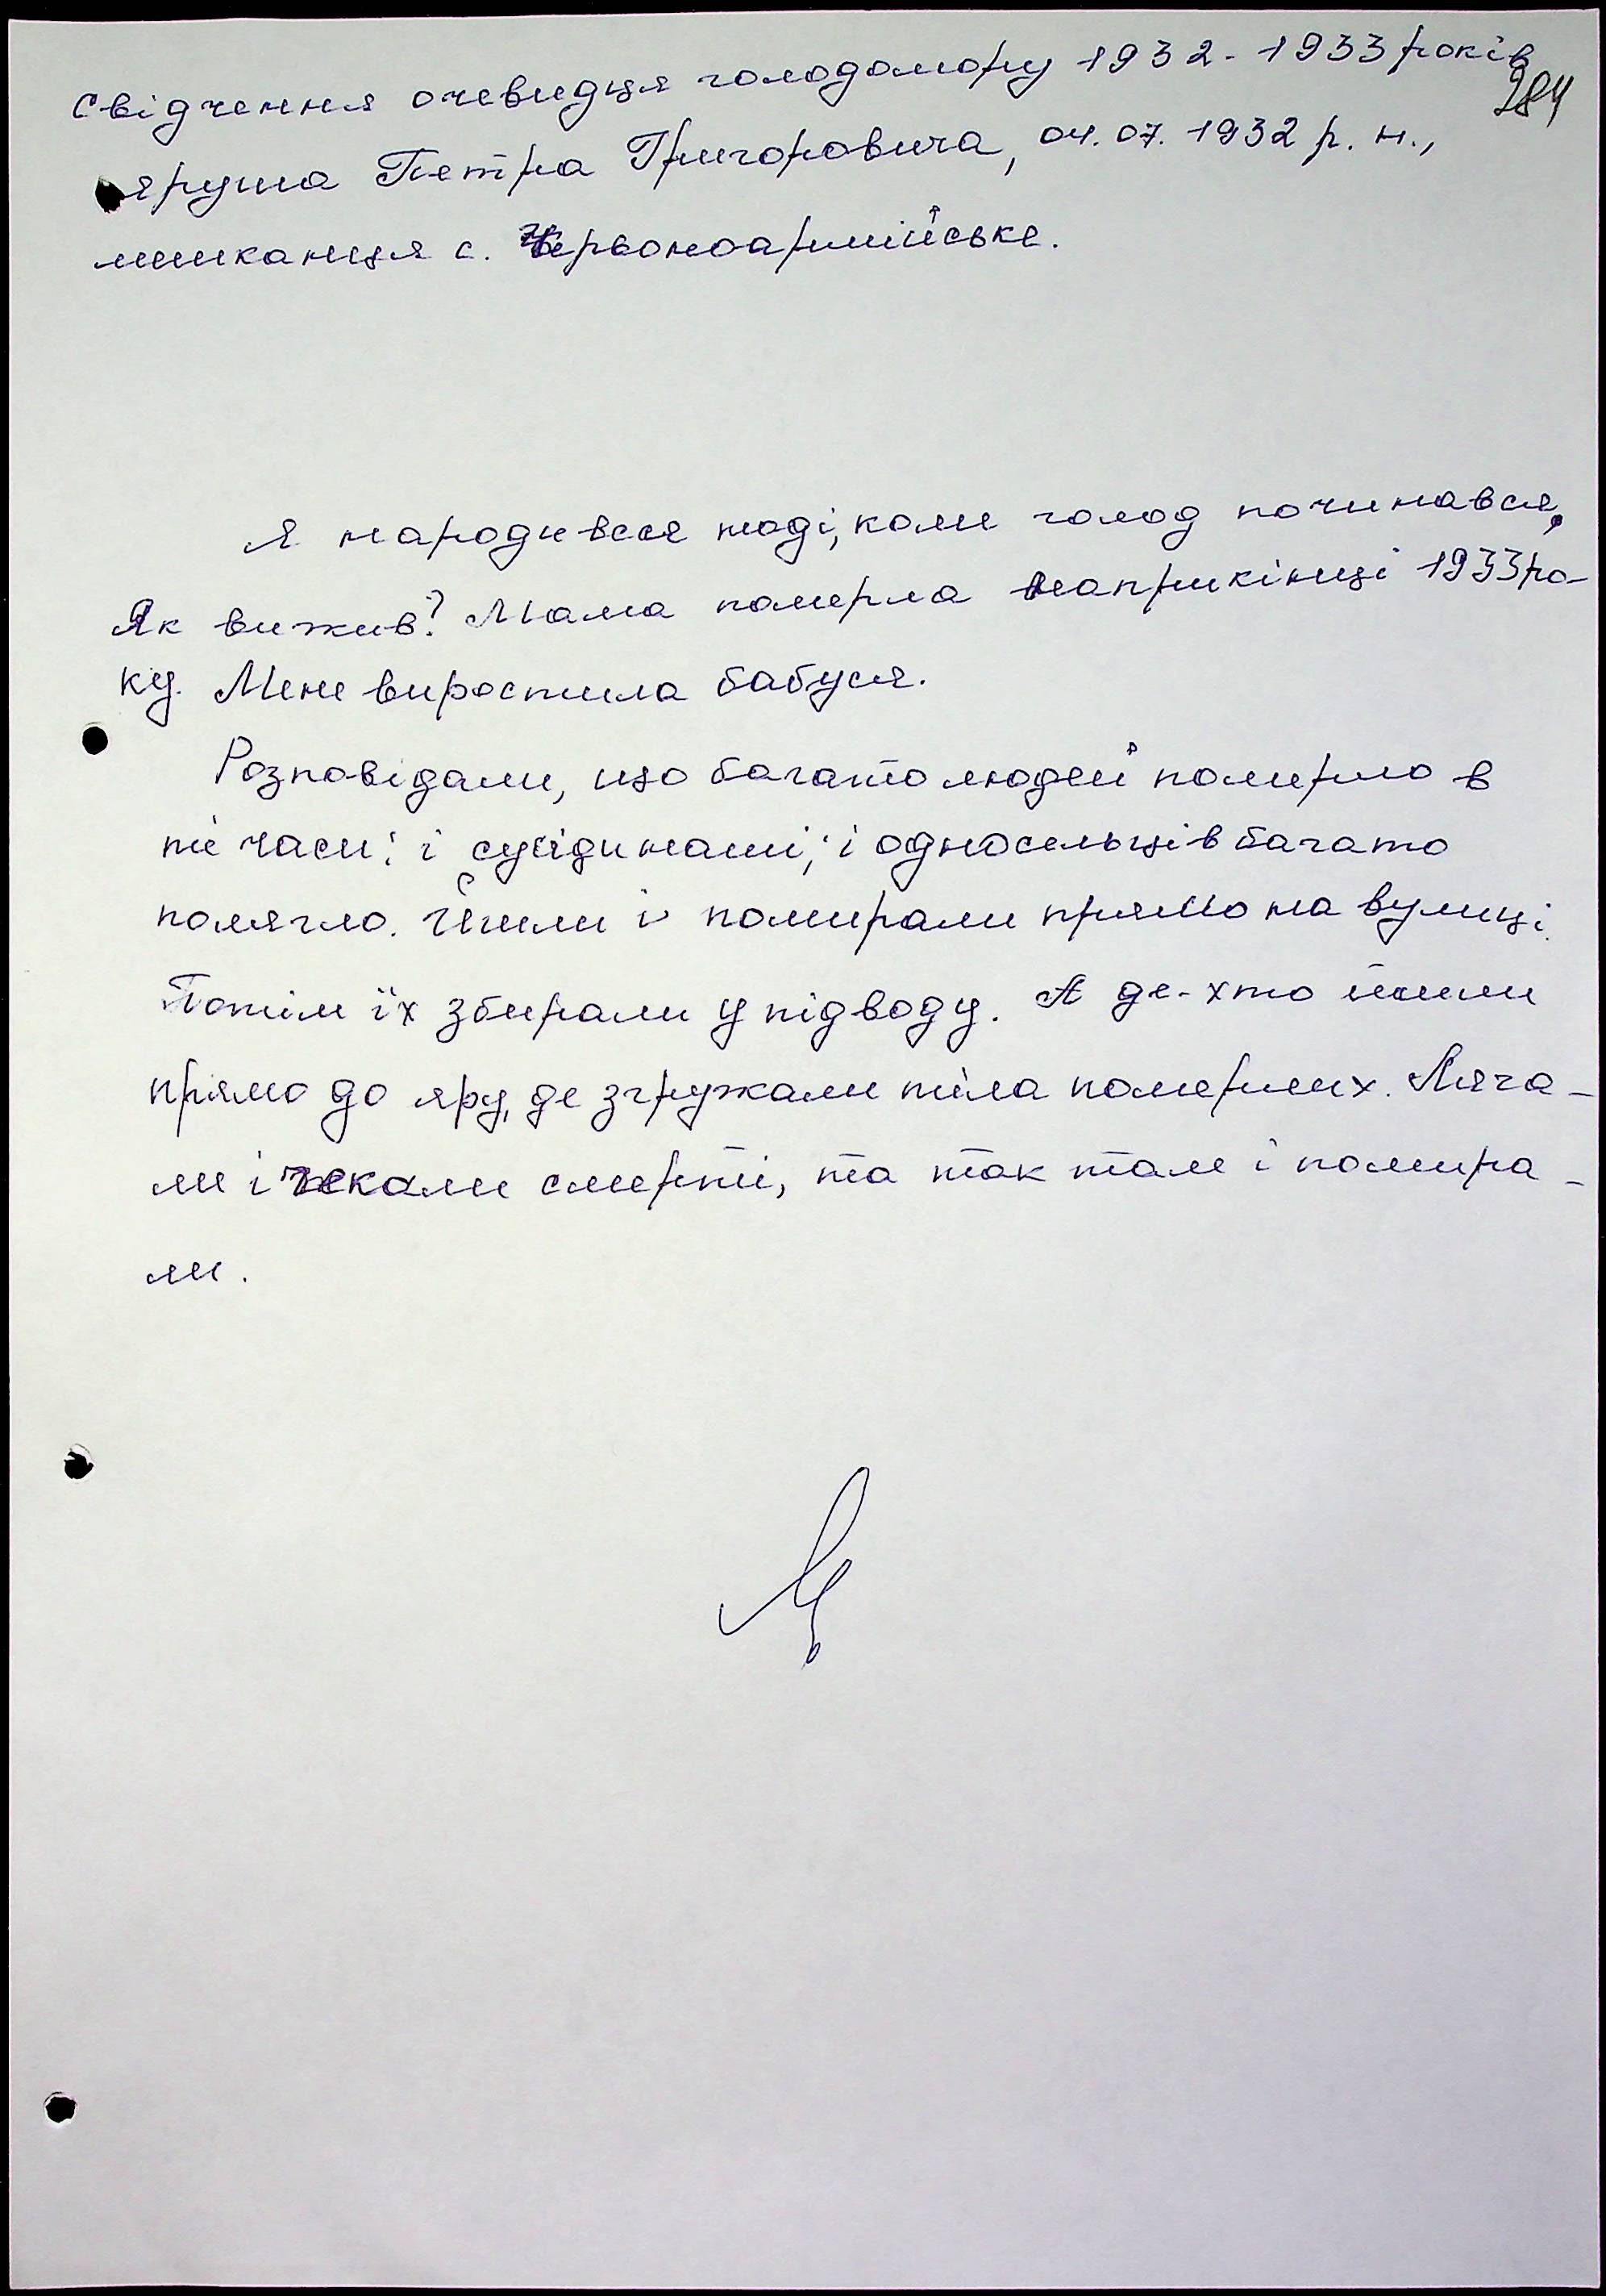 Свідчення очевидця голодомору 1932-1933 років
284
яруша Петра Григоровича, 04.07.1932 р. н.,
мешканця с. Червоноармійське.
Я народився тоді, коли голод починався.
Як вижив? Мама померла наприкінці 1933 ро-
ку. Мене виростила бабуся.
Розповідали, що багато людей померло в
ті часи: і сусіди наші, і односельців багато
полягло. Йшли і помирали прямо на вулиці.
Потім їх збирали у підводу. А де-хто йшли
прямо до яру, де згружали тіла померших. Ляга-
ли і чекали смерті, та так там і помира-
ли.